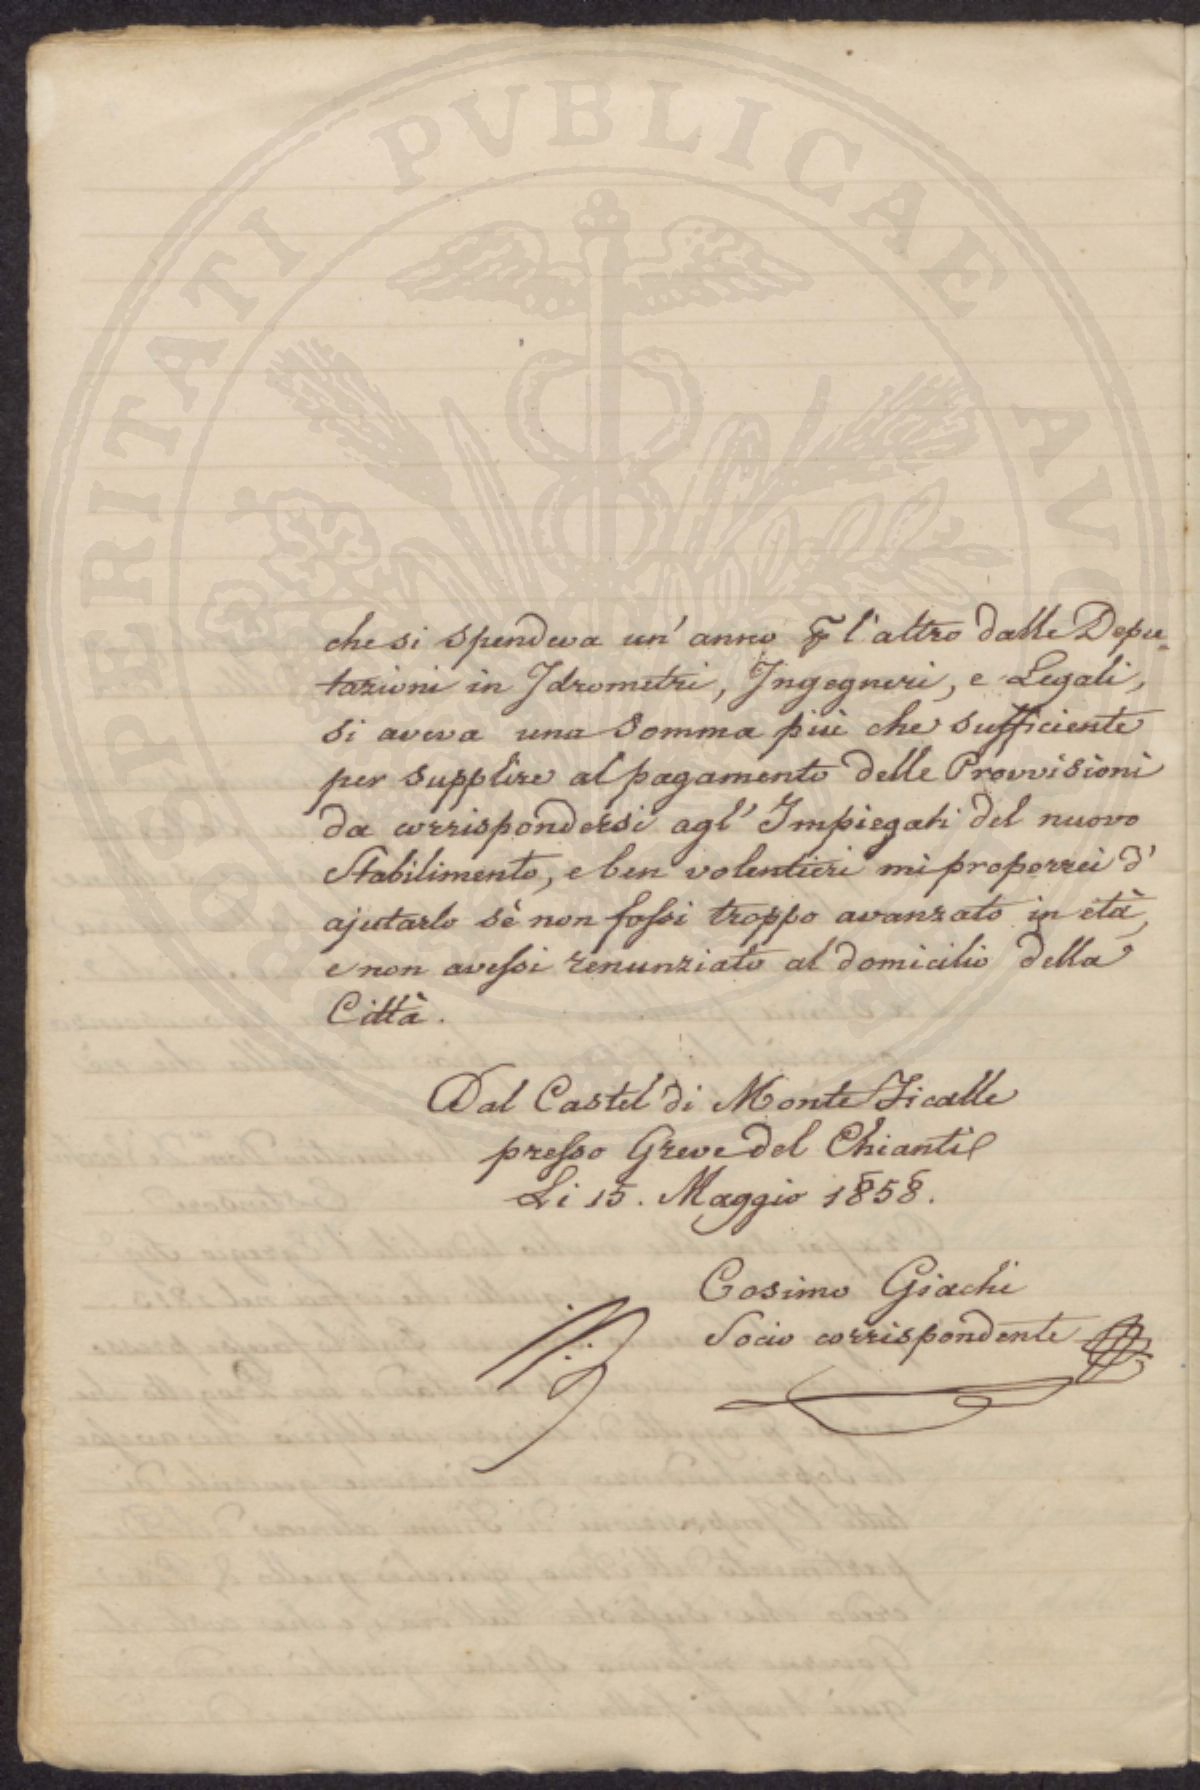 PROSPERITATI PVBLICAE AVGENDAE
che si spendeva un' anno p l'altro dalle Depu=
tazioni in Idrometri, Ingegneri, e Legali,
si aveva una Somma più che sufficiente
per supplire al pagamento delle Provvisioni
da corrispondersi agl' Impiegati del nuovo
Stabilimento, e ben volentieri mi proporrei d'
ajutarlo sè non fossi troppo avanzato in età,
e non avessi renunziato al domicilio della
Città.
Dal Castel di Monte Ficalle
presso Greve del Chianti
Li 15. Maggio 1858.
Cosimo Giachi
Socio corrispondente